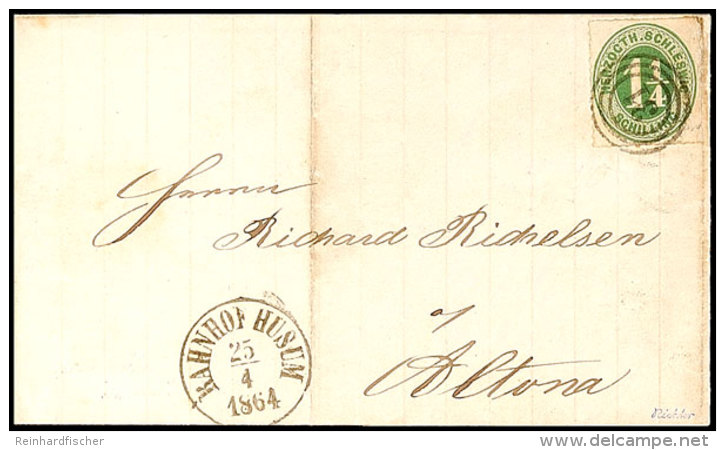 HERZOGTH. SCHLESWIG
1 1/4
SCHILLING
Herrn
Richard Rickelsen
Altona
BAHNHOF HUSUM
25/4
1864
Richter
Reinhardfischer
delcampe.net